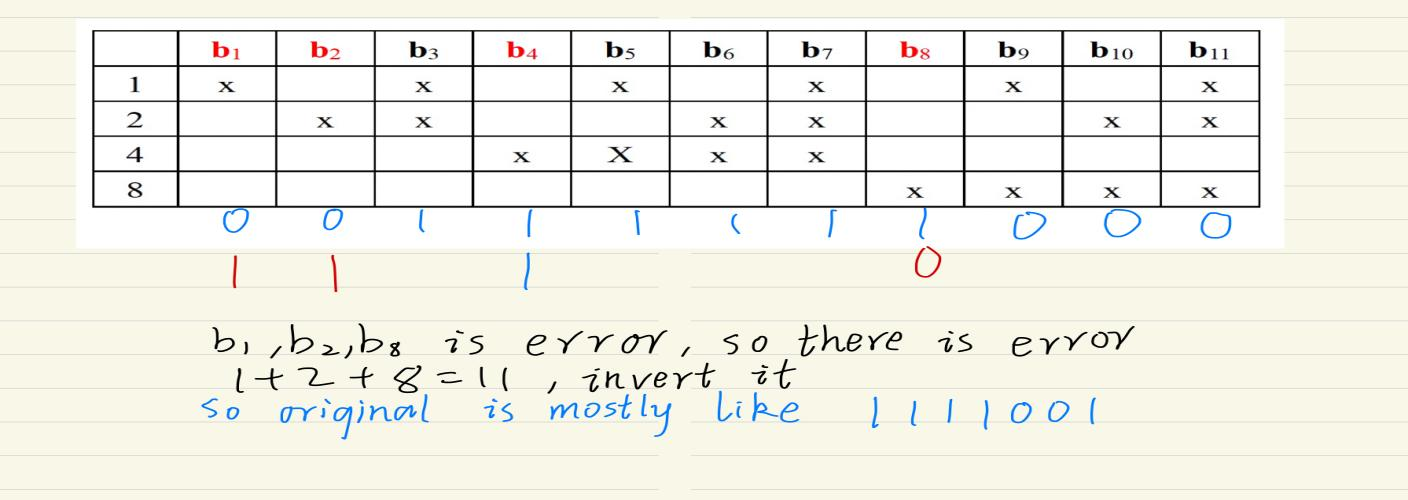 b₁ b₂ b₃ b₄ b₅ b₆ b₇ b₈ b₉ b₁₀ b₁₁
1 x x x x x x
2 x x x x x x
4 x X x x
8 x x x x
0 0 1 1 1 1 1 1 0 0 0
1 1 1 0
b₁,b₂,b₈ is error, so there is error
1+2+8=11, invert it
so original is mostly like 1111001